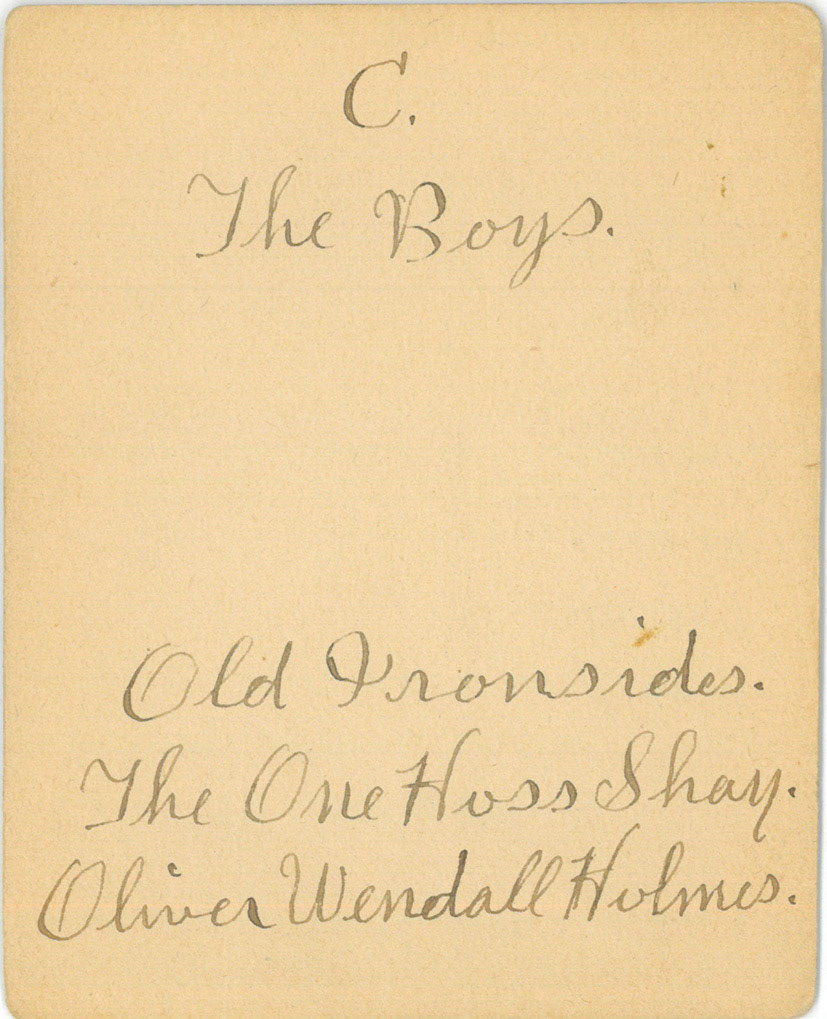 C.
The Boys.
Old Ironsides.
The One Hoss Shay.
Oliver Wendall Holmes.